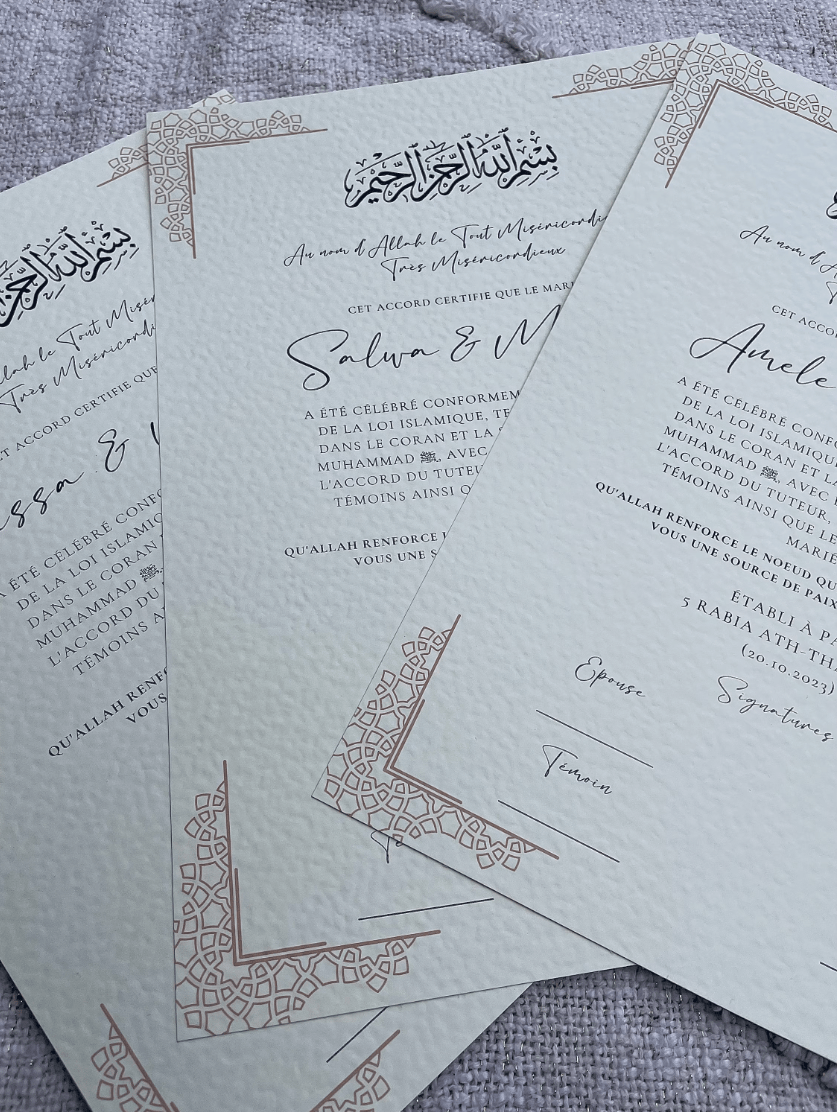 بِسْمِ اللَّهِ الرَّحْمَٰنِ الرَّحِيمِ
Allah le Tout
Très Miséricordi
ACCORD CERTIFIE QUE
&
A ÉTÉ CÉLÉBRÉ
DE LA LOI
DANS LE CORAN
MUHAMMAD ﷺ
L'ACCORD DU
TÉMOINS
QU'ALLAH
VOUS
بِسْمِ اللَّهِ الرَّحْمَٰنِ الرَّحِيمِ
Au nom d'Allah le Tout Miséricordi
Très Miséricordieux
CET ACCORD CERTIFIE QUE LE MARI
Salwa & M
A ÉTÉ CÉLÉBRÉ CONFORMEM
DE LA LOI ISLAMIQUE, TE
DANS LE CORAN ET LA
MUHAMMAD ﷺ, AVEC
L'ACCORD DU TUTEU
TÉMOINS AINSI Q
QU'ALLAH RENFORCE
VOUS UNE S
Té
Au nom d'A
CET ACCO
Amele
A ÉTÉ CÉLÉBRÉ CONFO
DE LA LOI ISLAMIQUE,
DANS LE CORAN ET LA
MUHAMMAD ﷺ, AVEC
L'ACCORD DU TUTEUR,
TÉMOINS AINSI QUE LE
MARIÉ
QU'ALLAH RENFORCE LE NOEUD QU
VOUS UNE SOURCE DE PAIX
ÉTABLI À PA
5 RABIA ATH-THA
(20.10.2023)
Epouse
Signatures
Témoin